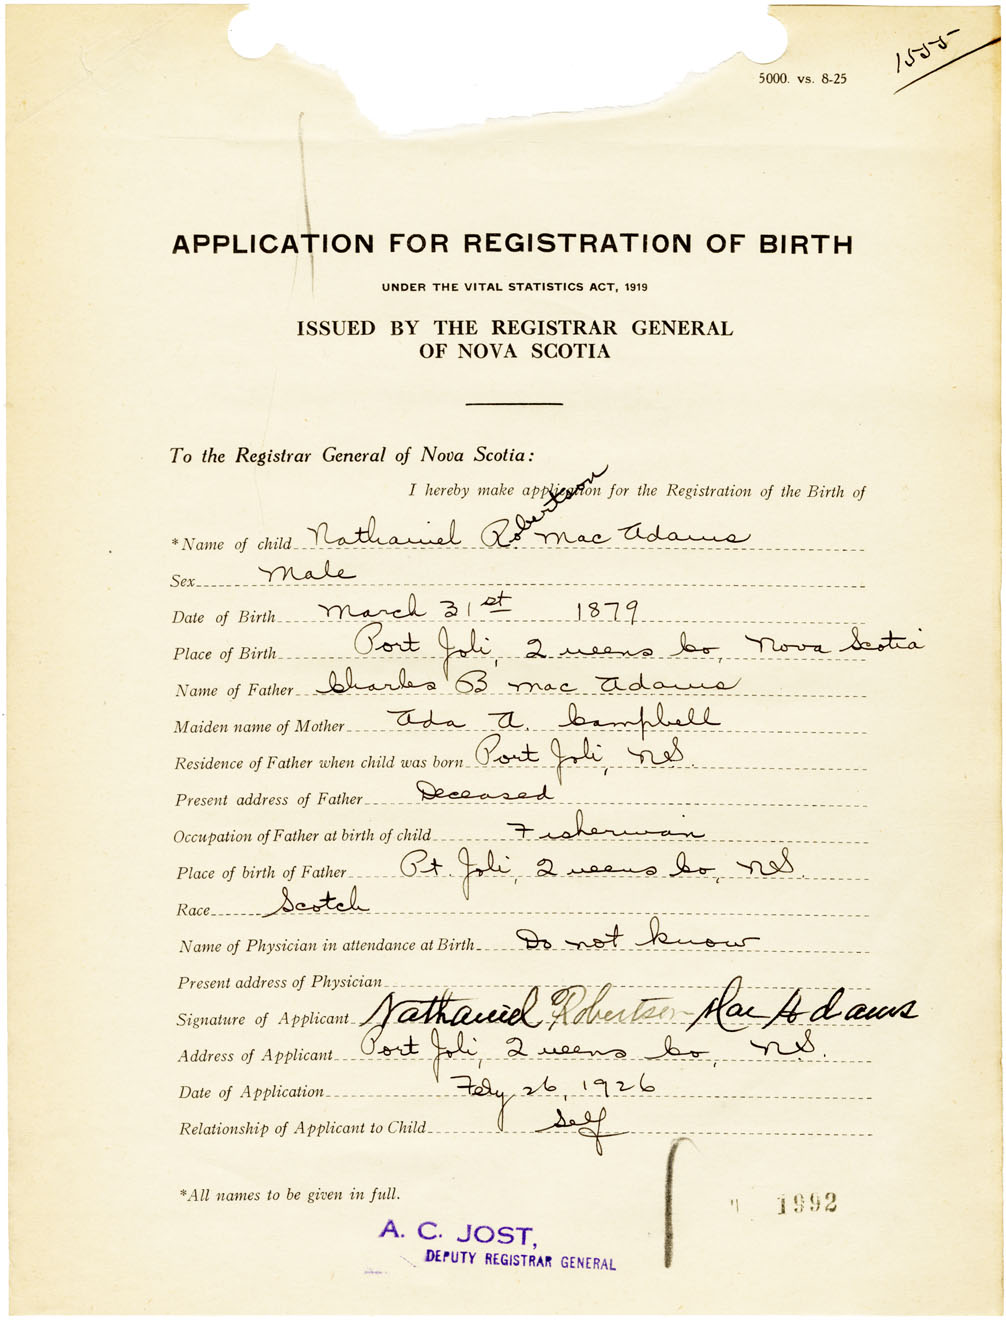 1555
5000. vs. 8-25
APPLICATION FOR REGISTRATION OF BIRTH
UNDER THE VITAL STATISTICS ACT, 1919
ISSUED BY THE REGISTRAR GENERAL
OF NOVA SCOTIA
To the Registrar General of Nova Scotia:
I hereby make application for the Registration of the Birth of
*Name of child Nathaniel Robertson Mac Adams
Sex Male
Date of Birth March 31st 1879
Place of Birth Port Joli, Queens Co, Nova Scotia
Name of Father Charles B Mac Adams
Maiden name of Mother Ada A. Campbell
Residence of Father when child was born Port Joli, NS.
Present address of Father Deceased
Occupation of Father at birth of child Fisherman
Place of birth of Father Pt. Joli, Queens Co, NS.
Race Scotch
Name of Physician in attendance at Birth Do not know
Present address of Physician
Signature of Applicant Nathaniel Robertson Mac Adams
Address of Applicant Port Joli, Queens Co, N.S.
Date of Application Feby 26, 1926
Relationship of Applicant to Child Self
*All names to be given in full.
1992
A. C. JOST,
DEPUTY REGISTRAR GENERAL